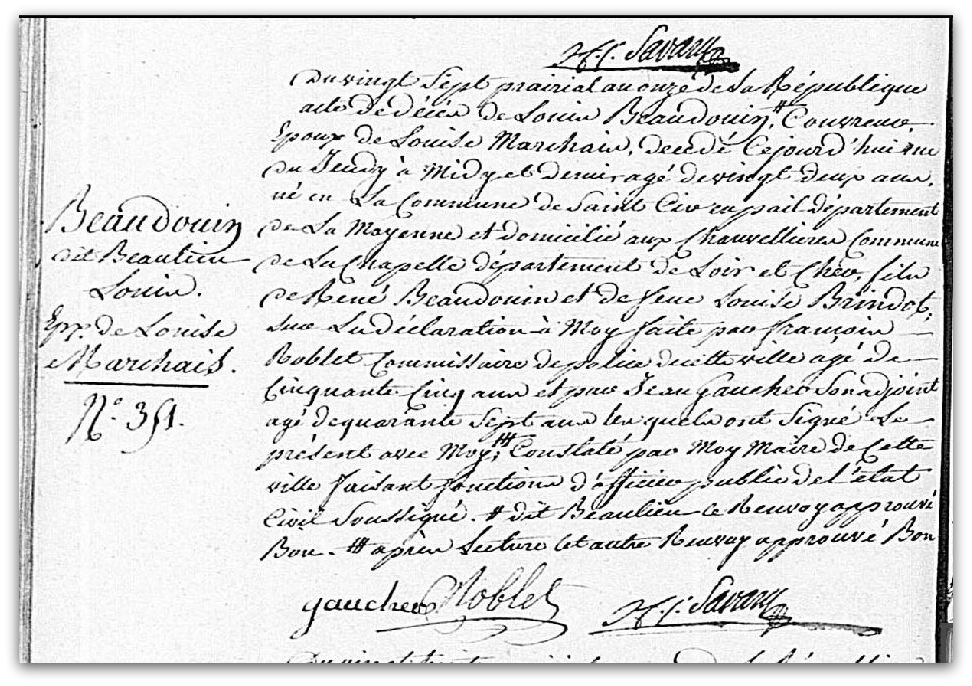 Savary
Du vingt Sept prairial an onze de la République
acte de décès de Louis Beaudouin,# Couvreur,
Epoux de Louise Marchais, décédé Cejourd'hui
du Jeudy à Midy et demi, agé de vingt deux ans,
né en La Commune de Saint département
de La Mayenne et domicilié aux Chauvellieres Commune
de La Chapelle département de Loir et Cher, fils
de René Beaudouin et de feue Louise Brindot,
Sur La déclaration à Moy faite par françois
Roblet Commissaire de police de cette ville agé de
Cinquante Cinq ans et par Jean Gaucher Son adjoint
agé de quarante Sept ans les quels ont Signé Le
présent avec Moy,## Constaté par Moy Maire de Cette
ville faisant fonctions d'officier public de l'état
Civil Soussigné. # dit Beaulieu ce Renvoy approuvé
Bon. ## après Lecture Cet autre Renvoy approuvé Bon
Beaudouin
dit Beaulieu
Louis.
Epx. de Louise
Marchais.
N° 351.
gaucher Roblet Savary